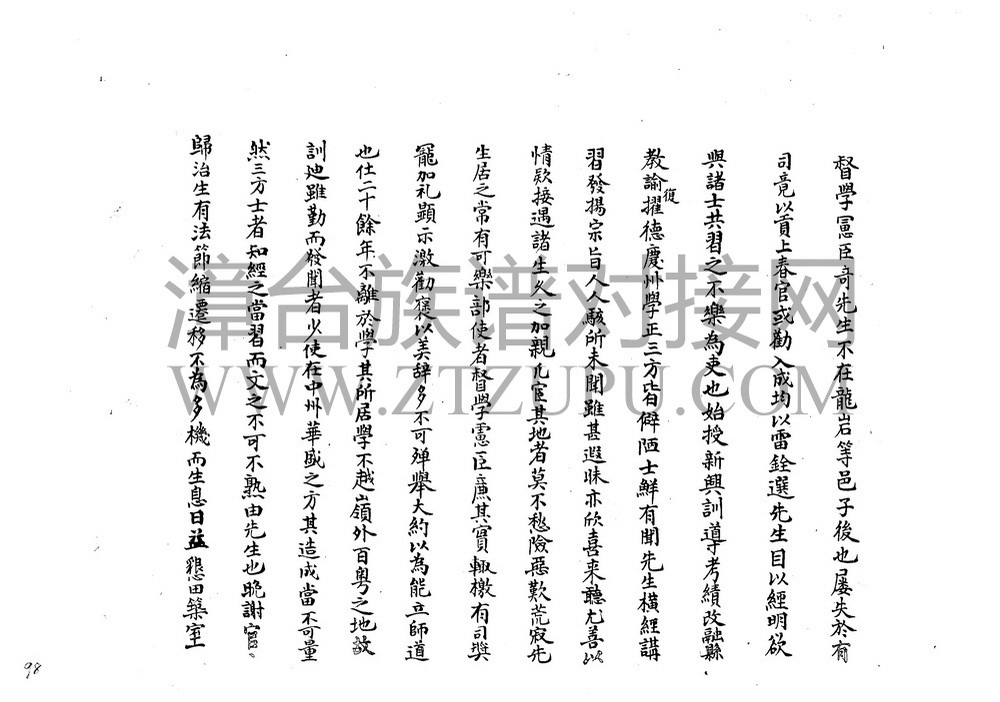 督學憲臣奇先生不在龍岩等邑子後也屢失於有
司竟以貢上春官或勸入成均以雷銓選先生目以經明欲
與諸士共習之不樂為吏也始授新興訓導考績改融縣
教諭復擢德慶州學正三方皆僻陋士鮮有聞先生橫經講
習發揚宗旨人人駭所未聞雖甚遐昧亦欣喜来聽尤善以
情欵接遇諸生久之加親凡宦其地者莫不愁險惡歎荒寂先
生居之常有可樂部使者督學憲臣廉其實輙檄有司奨
寵加礼顕示激勸褒以美辞多不可殫舉大約以為能立師道
也仕二十餘年不離於學其所居學不越嶺外百粤之地故
訓迪雖勤而發聞者少使在中州華盛之方其造成當不可量
然三方士者知經之當習而文之不可不熟由先生也晚謝官
歸治生有法節縮遷移不為多機而生息日益懇田築室
漳台族谱对接网
WWW.ZTZUPU.COM
98